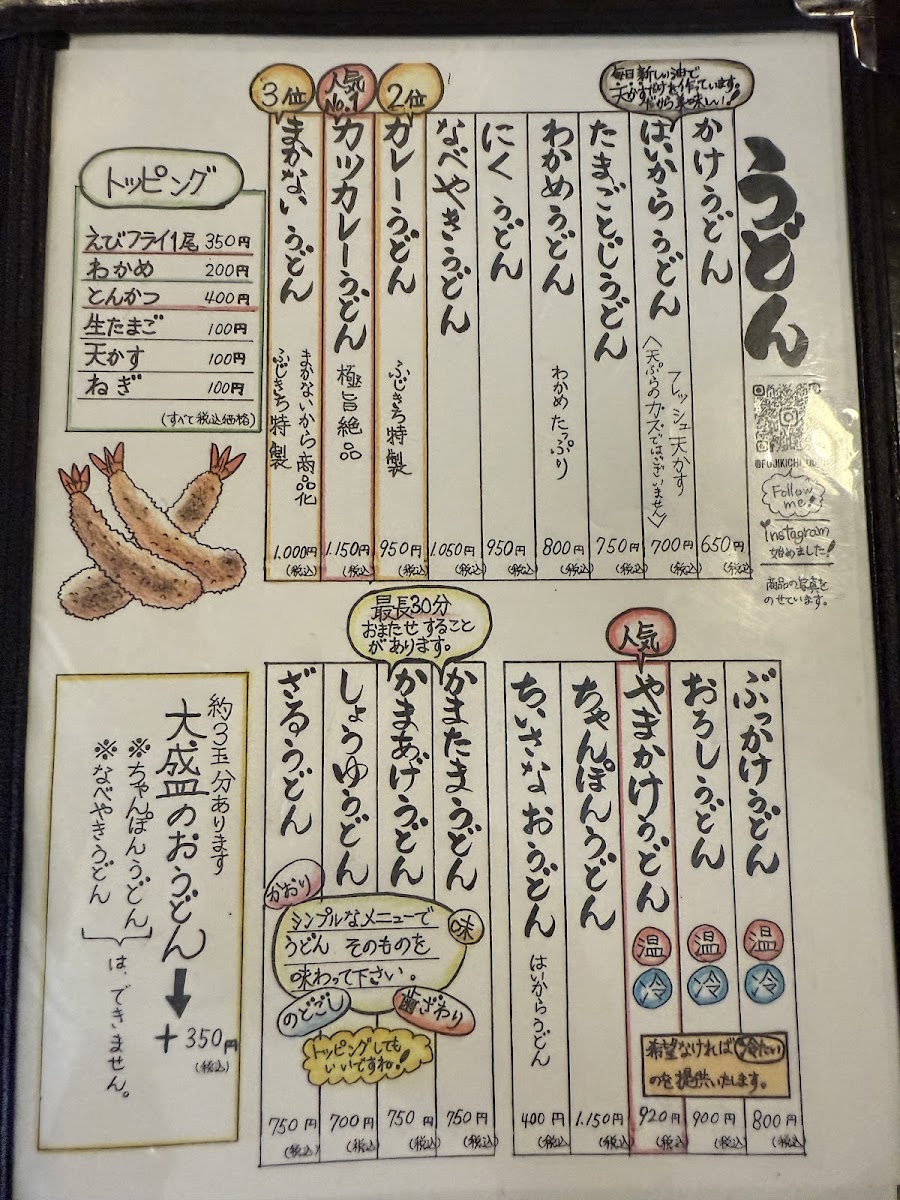 うどん
@FUJIKICHI_UDON
Follow me♪
Instagram
始めました!
商品の写真を
のせています。
毎日新しい油で
天かすだけを作っています。
だから美味しい!!
かけうどん
650円
(税込)
はいからうどん
フレッシュ天かす
〈天ぷらのカスではございません〉
700円
(税込)
たまごとじうどん
750円
(税込)
わかめうどん
わかめたっぷり
800円
(税込)
にくうどん
950円
(税込)
なべやきうどん
1.050円
(税込)
2位
カレーうどん
ふじきち特製
950円
(税込)
人気
No.1
カツカレーうどん
極旨絶品
1.150円
(税込)
3位
まかないうどん
まかないから商品化
ふじきち特製
1.000円
(税込)
トッピング
えびフライ1尾 350円
わかめ 200円
とんかつ 400円
生たまご 100円
天かす 100円
ねぎ 100円
(すべて税込価格)
ぶっかけうどん
温
冷
800円
(税込)
おろしうどん
温
冷
900円
(税込)
人気
やまかけうどん
温
冷
920円
(税込)
希望なければ冷たい
のを提供いたします。
ちゃんぽんうどん
1.150円
(税込)
ちいさなおうどん
はいからうどん
400円
(税込)
最長30分
おまたせすること
があります。
かまたまうどん
750円
(税込)
かまあげうどん
750円
(税込)
しょうゆうどん
700円
(税込)
ざるうどん
750円
(税込)
かおり
味
シンプルなメニューで
うどんそのものを
味わって下さい。
のどごし
歯ざわり
トッピングしても
いいですね!
約3玉分あります
大盛のおうどん
+350円
(税込)
※ちゃんぽんうどん
※なべやきうどん
は、できません。